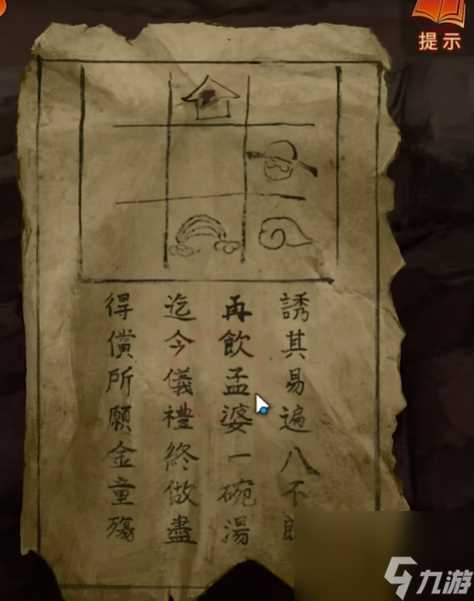 提示
誘其易遍八不
再飲孟婆一碗湯
迄今儀禮終做盡
得償所願金童殤
九游